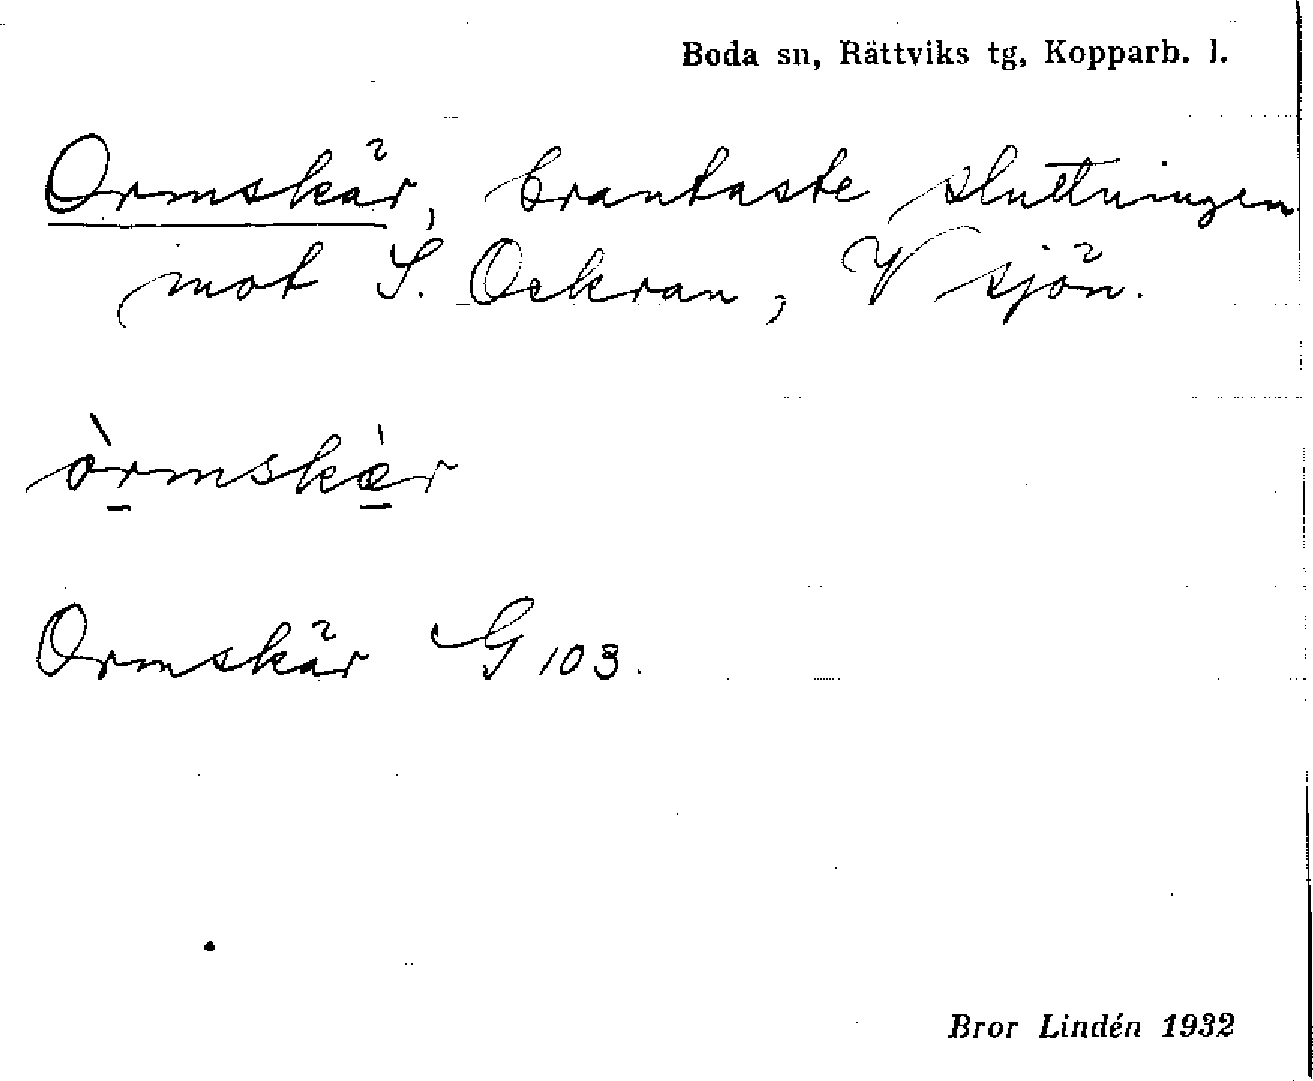 Boda sn, Rättviks tg, Kopparb. l.
Ormskär, brantaste sluttningen
mot S. Ockran, V sjön.
òrmskær
Ormskär G 103.
Bror Lindén 1932